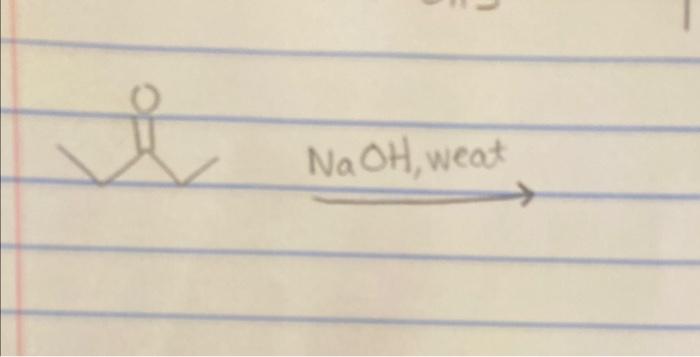 O
NaOH, weat